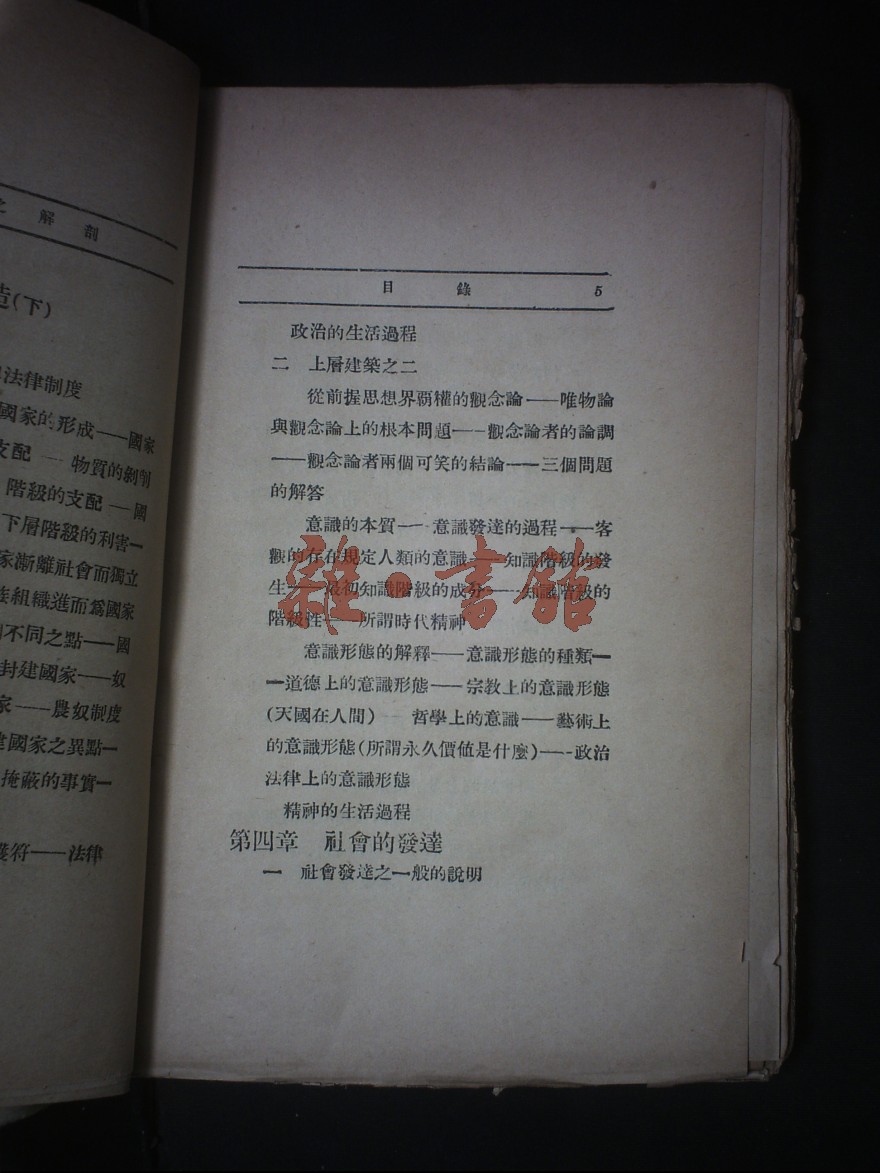 之解剖
造(下)
法律制度
國家的形成——國家
支配——物質的剝削
階級的支配——國
下層階級的利害—
家漸離社會而獨立
族組織進而爲國家
不同之點——國
封建國家——奴
家——農奴制度
建國家之異點—
掩蔽的事實—
護符——法律
目錄 5
政治的生活過程
二 上層建築之二
從前握思想界覇權的觀念論——唯物論
與觀念論上的根本問題——觀念論者的論調
——觀念論者兩個可笑的結論——三個問題
的解答
意識的本質——意識發達的過程——客
觀的存在規定人類的意識——知識階級的發
生——最初知識階級的成分——知識階級的
階級性——所謂時代精神
意識形態的解釋——意識形態的種類—
—道德上的意識形態——宗教上的意識形態
(天國在人間)——哲學上的意識——藝術上
的意識形態(所謂永久價値是什麼)——政治
法律上的意識形態
精神的生活過程
第四章 社會的發達
一 社會發達之一般的說明
雜·書館